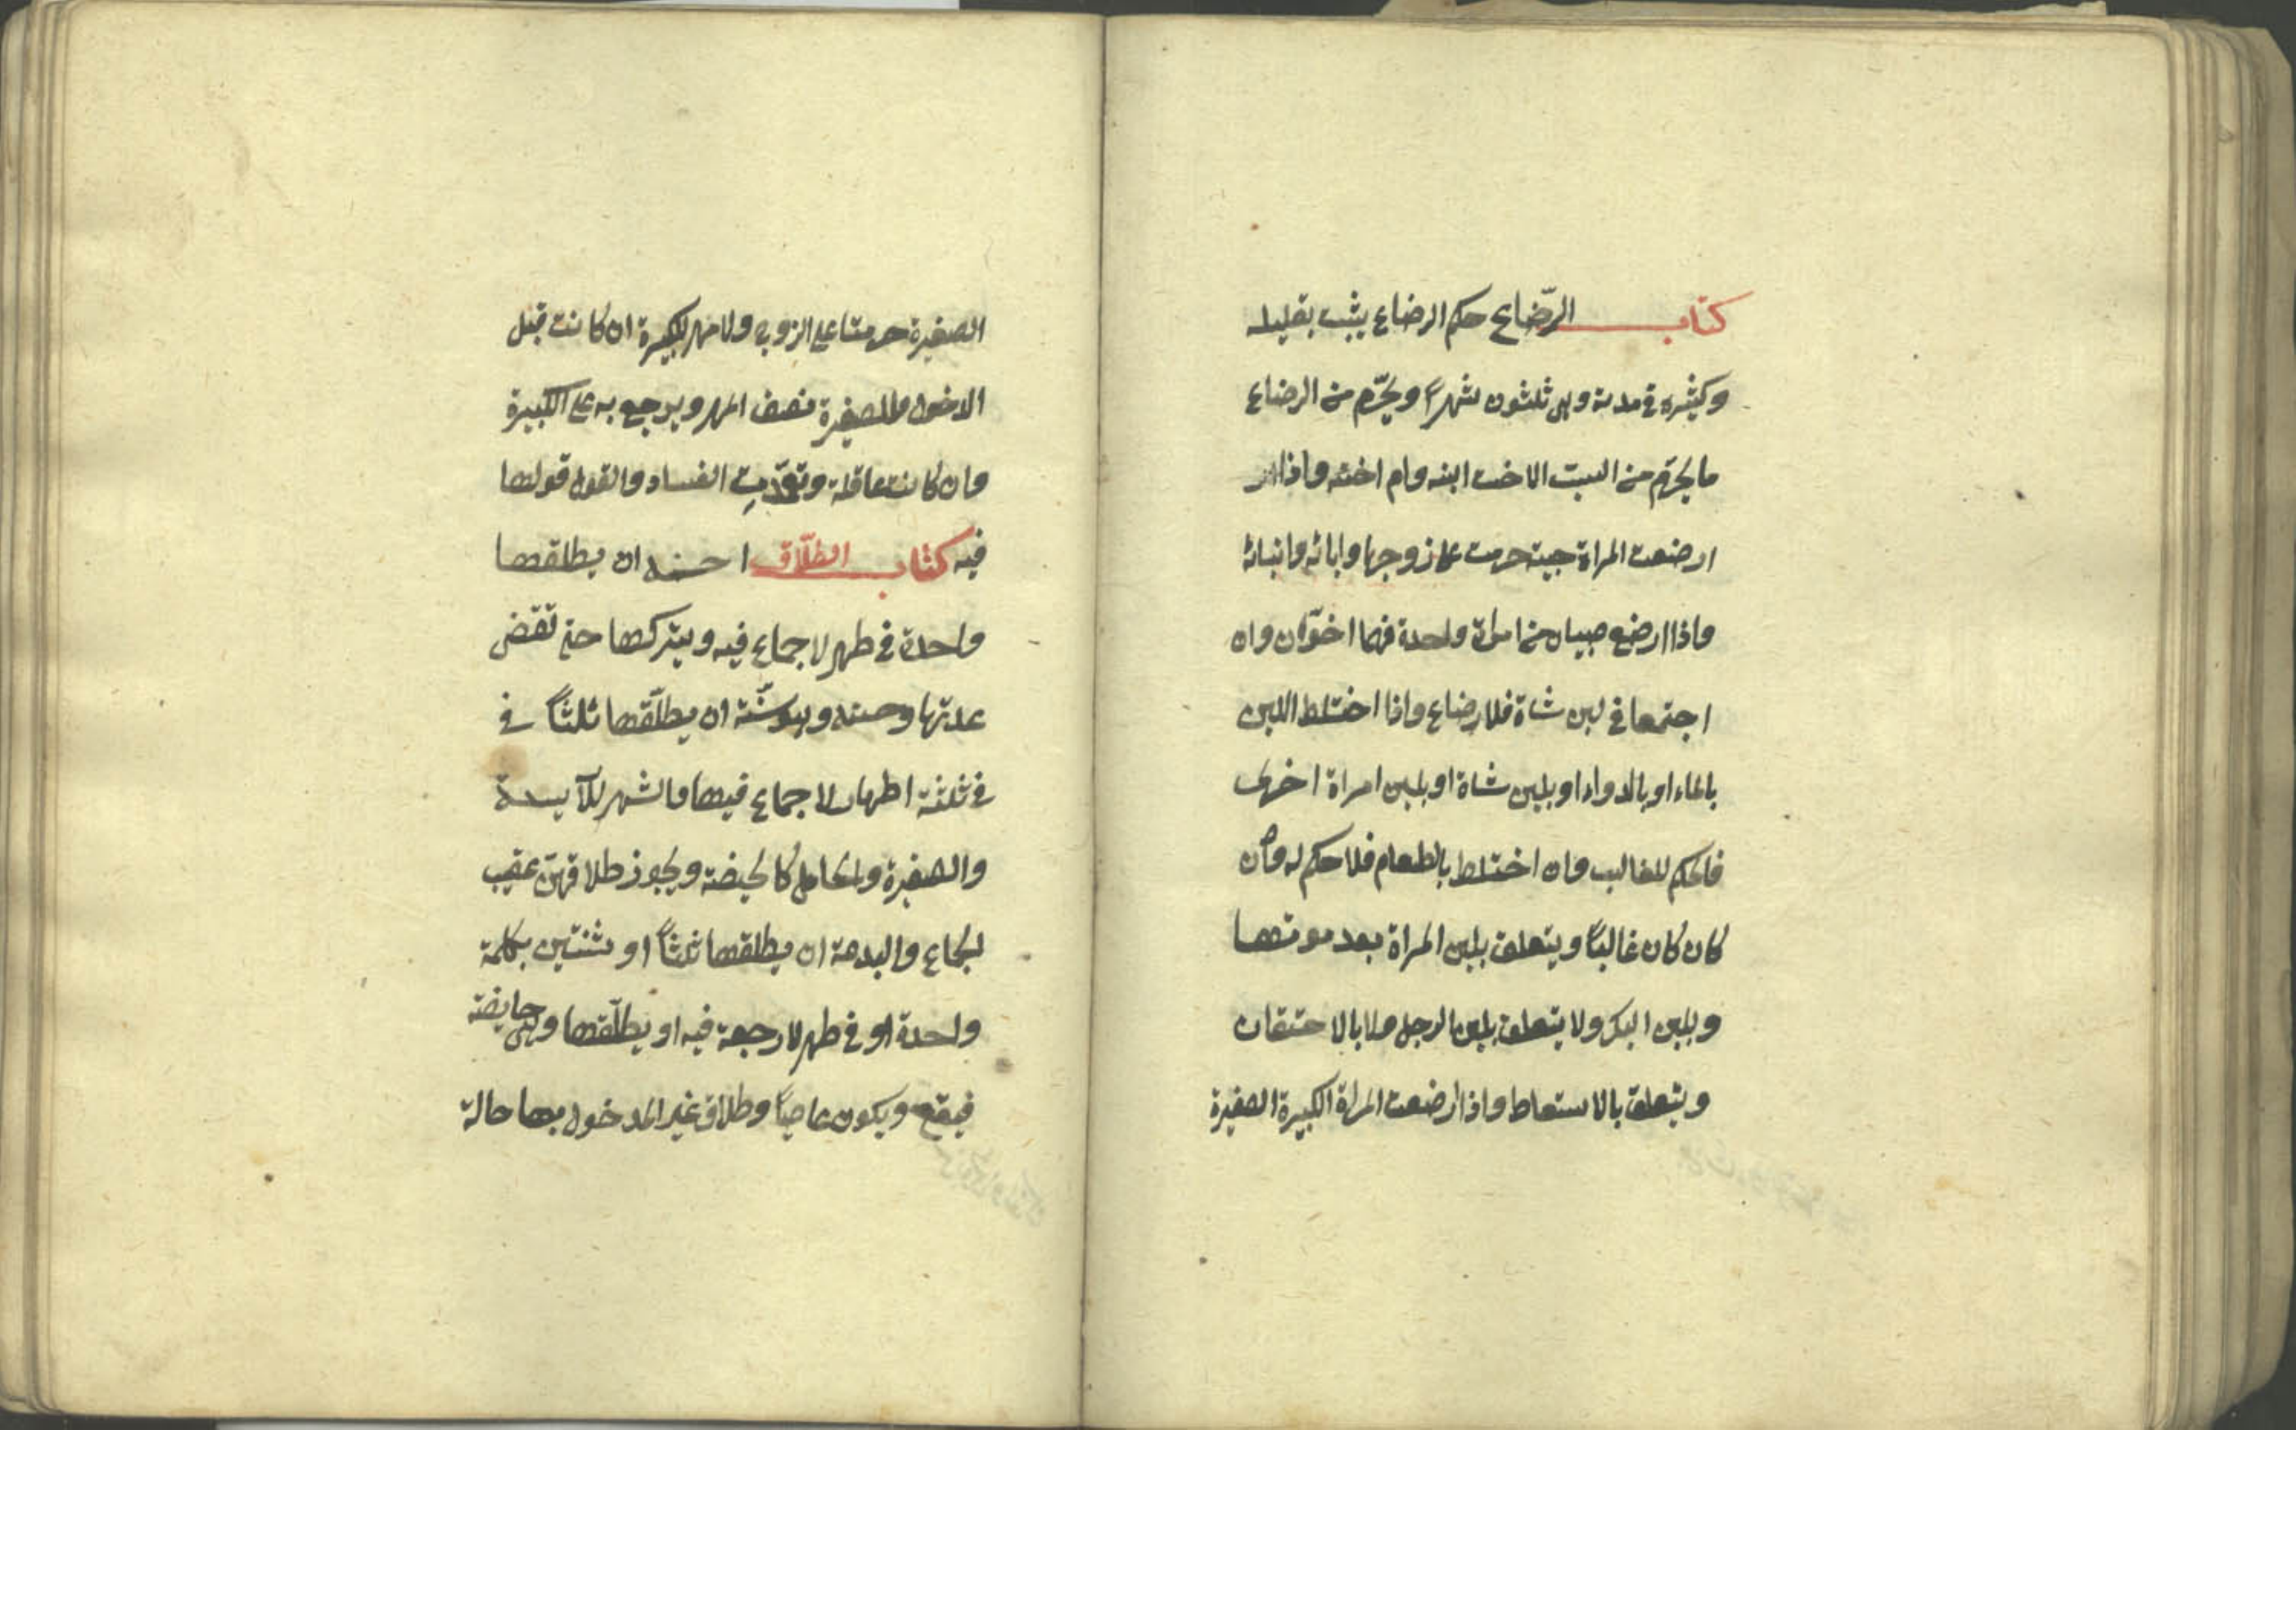 كتاب الرّضاع حكم الرضاع يثبت بقليله
وكثيره في مدته وهي ثلثون شهراً ويحرّم من الرضاع
ما يحرّم من النسب الا اخت ابنه وام اخته واذا
ارضعت المراة صبية حرمت على زوجها وابائه وابنائه
واذا ارضع صبيان من امراة واحدة فهما اخوان وان
اجتمعا في لبن شاة فلا رضاع واذا اختلط اللبن
بالماء او بالدواء او بلبن شاة او بلبن امراة اخرى
فالحكم للغالب وان اختلط بالطعام فلا حكم له وان
كان كان غالباً ويتعلق بلبن المراة بعد موتها
وبلبن البكر ولا يتعلق بلبن الرجل ولا بالاحتقان
ويتعلق بالاستعاط واذا ارضعت المراة الكبيرة الصغيرة
الصغيرة حرمتا على الزوج ولا مهر للكبيرة ان كانت قبل
الدخول وللصغيرة نصف المهر ويرجع به على الكبيرة
وان كانت عاقلة وتعدّت الفساد والقول قولها
فيه كتاب الطلّاق احسنه ان يطلقها
واحدة في طهر لا جماع فيه ويتركها حتى تقضى
عدتها وحسنه وهو سنّة ان يطلّقها ثلثاً في
في ثلثة اطهار لا جماع فيها والشهر للآيسة
والصغيرة والحامل كالحيضة ويجوز طلاقهنّ عقيب
الجماع والبدعة ان يطلقها ثلثاً او ثنتين بكلمة
واحدة او في طهر لا رجعة فيه او يطلّقها وهي حايضة
فيقع ويكون عاصياً وطلاق غير المدخول بها حالة